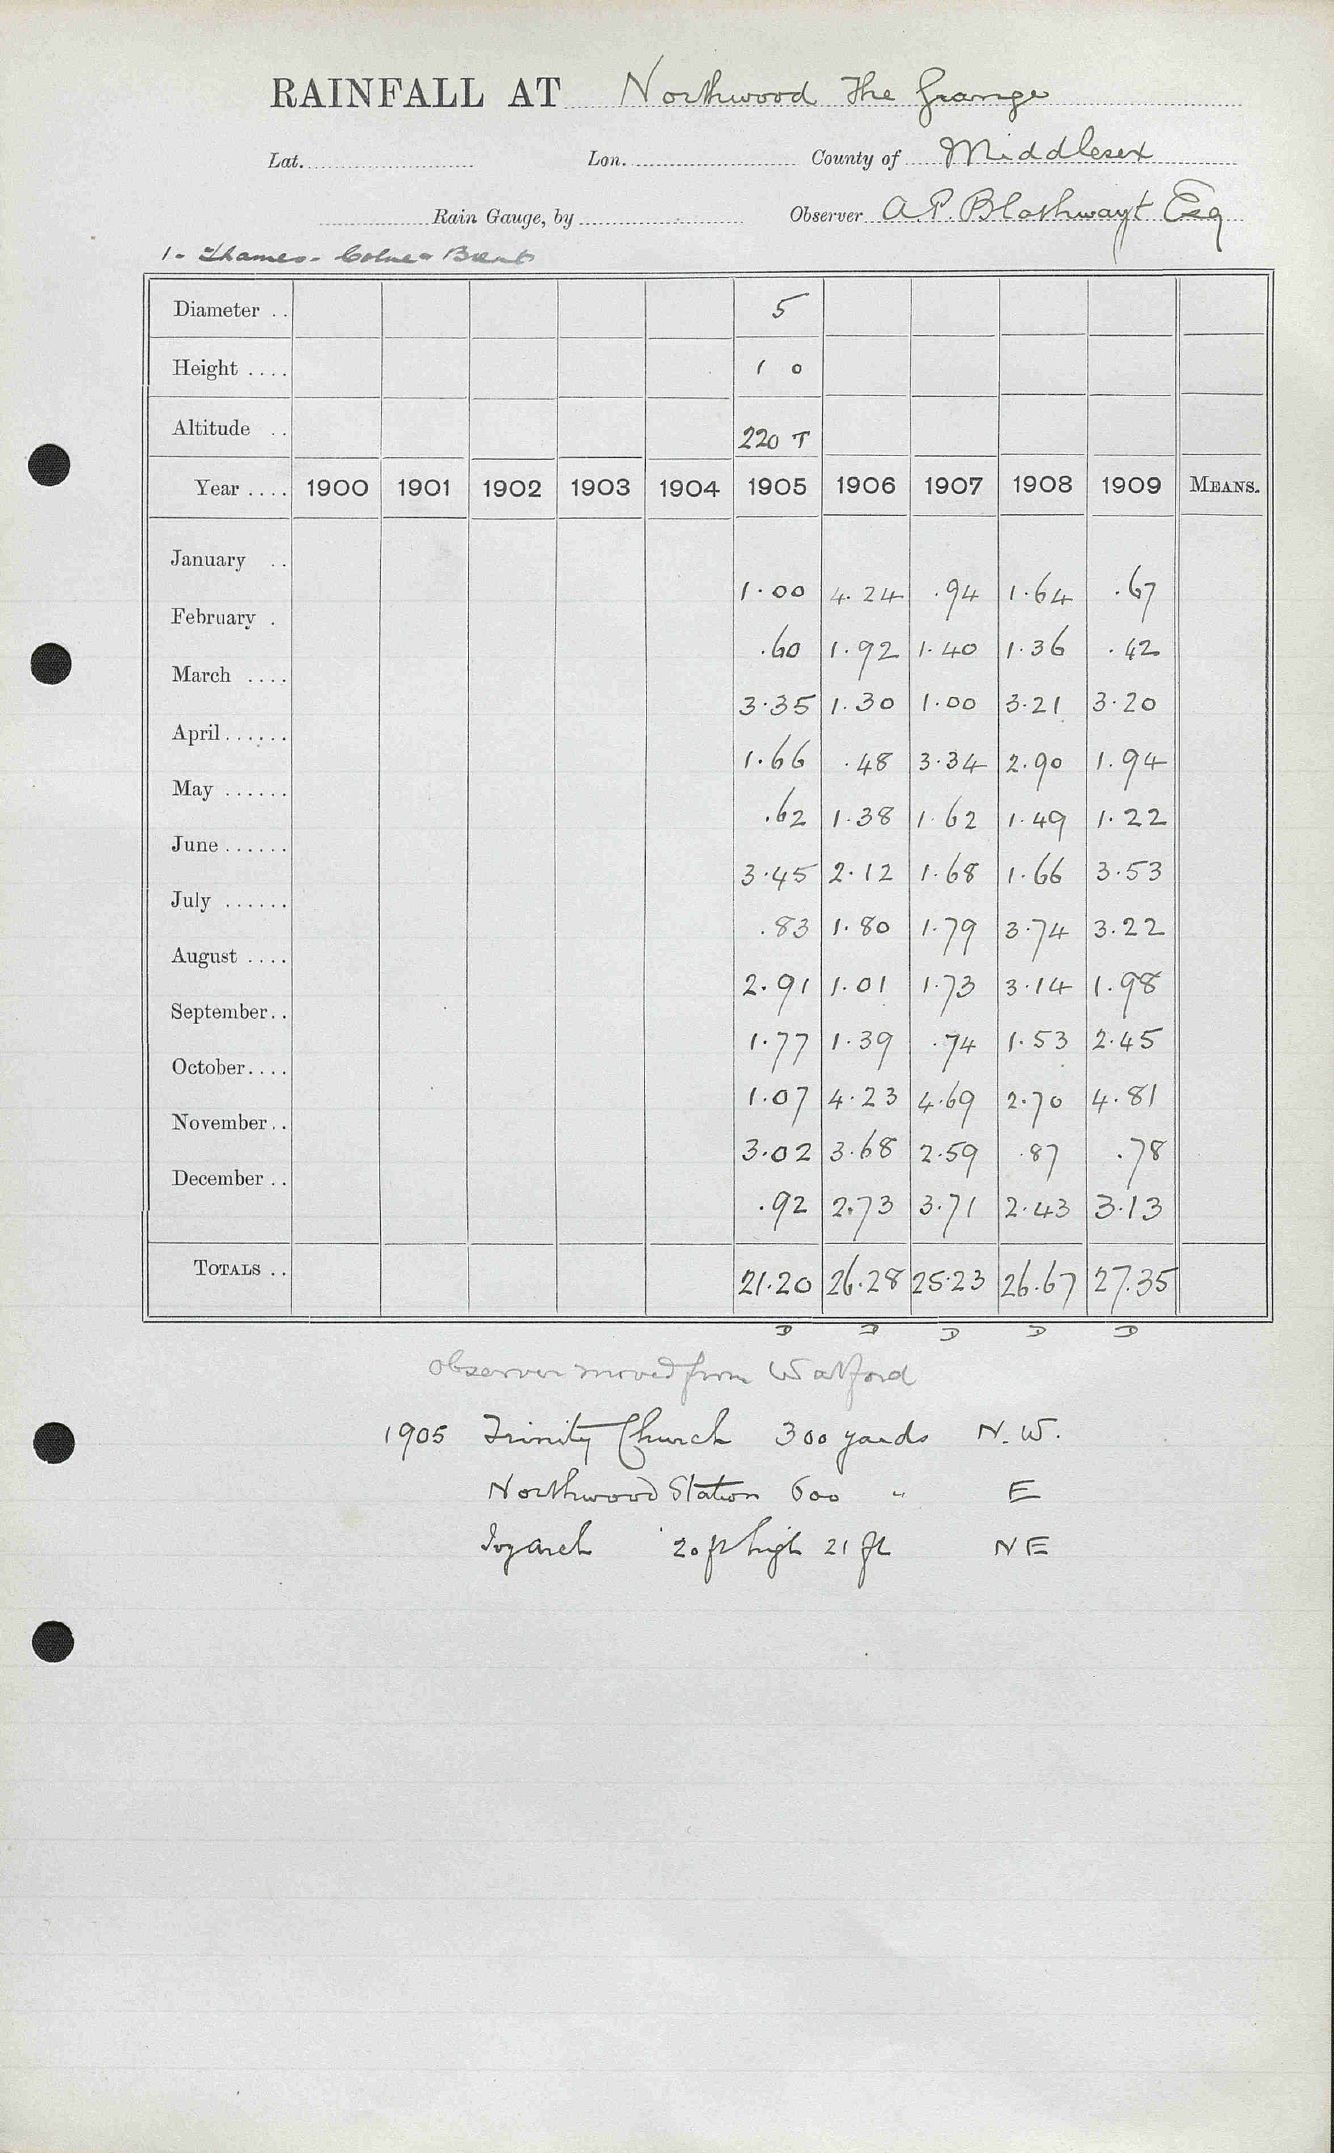 RAINFALL AT Northwood The Grange
Lat. Lon. County of Middlesex
Rain Gauge, by Observer A.P. Blathwayt Esq
1 - Thames - Colne & Brent
Diameter .. 5
Height .... 1 0
Altitude .. 220 T
Year .... 1900 1901 1902 1903 1904 1905 1906 1907 1908 1909 MEANS.
January .. 1.00 4.24 .94 1.64 .67
February . .60 1.92 1.40 1.36 .42
March .... 3.35 1.30 1.00 3.21 3.20
April ...... 1.66 .48 3.34 2.90 1.94
May ...... .62 1.38 1.62 1.49 1.22
June ...... 3.45 2.12 1.68 1.66 3.53
July ...... .83 1.80 1.79 3.74 3.22
August .... 2.91 1.01 1.73 3.14 1.98
September .. 1.77 1.39 .74 1.53 2.45
October .... 1.07 4.23 4.69 2.70 4.81
November .. 3.02 3.68 2.59 .87 .78
December .. .92 2.73 3.71 2.43 3.13
TOTALS .. 21.20 26.28 25.23 26.67 27.35
D D D D D
Observer moved from Watford
1905 Trinity Church 300 yards N.W.
Northwood Station 600 " E
Ivy arch 20 ft high 21 ft NE